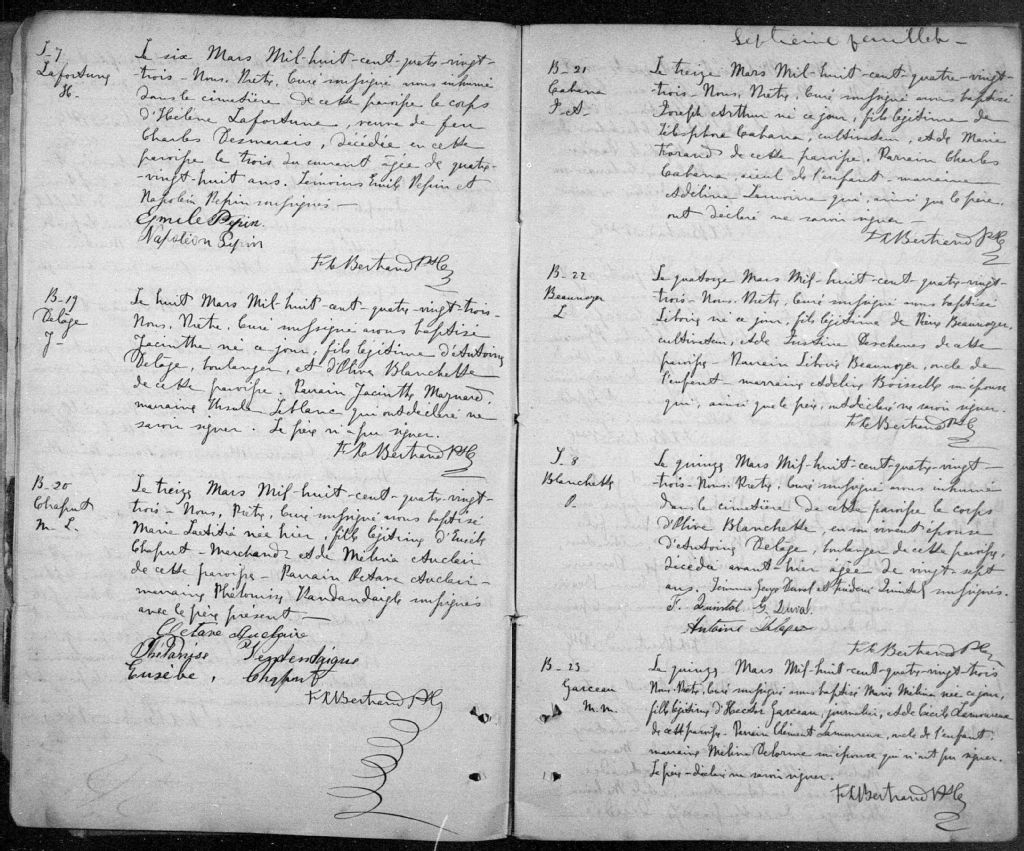 S. 7
Lafortune
H.
Le six Mars Mil-huit-cent-quatre-vingt-
trois - Nous, Prêtre, Curé soussigné avons inhumé
dans le cimetière de cette paroisse le corps
d'Hélène Lafortune, veuve de feu
Charles Desmarais, décédée en cette
paroisse le trois du courant âgée de quatre-
-vingt-huit ans. Témoins Emile Pepin et
Napoléon Pepin soussignés -
Emile Pepin.
Napoléon Pepin
Bertrand Ptre
B-19
Delâge
J -
Le huit Mars Mil-huit-cent-quatre-vingt-trois -
Nous, Prêtre, Curé soussigné avons baptisé
Jacinthe né ce jour, fils légitime d'Antoine
Delâge, boulanger, et d'Olive Blanchette
de cette paroisse. Parrain Jacinthe Maynard.
marraine Ursule Leblanc qui ont déclaré ne
savoir signer. Le père n'a pu signer.
Bertrand Ptre
B-20
Chaput
M. L.
Le treize Mars Mil-huit-cent-quatre-vingt-
trois - Nous, Prêtre, Curé soussigné avons baptisé
Marie Laetitia née hier, fille légitime d'Eusèbe
Chaput - Marchand et de Mélina Auclair
de cette paroisse - Parrain Octave Auclair -
marraine soussignés
avec le père présent -
Octave Auclair
Eusèbe. Chaput
Bertrand Ptre
Septième feuillet -
B-21
Cabana
J. A.
Le treize Mars Mil-huit-cent-quatre-vingt-
trois - Nous, Prêtre, Curé soussigné avons baptisé
Joseph Arthur né ce jour, fils légitime de
Télesphore Cabana, cultivateur, et de Marie
de cette paroisse. Parrain Charles
Cabana, aieul de l'enfant - marraine
Adeline Lamoine qui, ainsi que le père,
ont déclaré ne savoir signer -
Bertrand Ptre
B-22
Beaunoyer
L
Le quatorze Mars Mil-huit-cent-quatre-vingt-
trois - Nous, Prêtre, Curé soussigné avons baptisé
né ce jour, fils légitime de Beaunoyer,
cultivateur, et de Justine Deschenes de cette
paroisse Parrain Beaunoyer, oncle de
l'enfant - marraine Adeline Boisselle son épouse
qui, ainsi que le père, ont déclaré ne savoir signer.
Bertrand Ptre
S. 8
Blanchette
O.
Le quinze Mars Mil-huit-cent-quatre-vingt-
-trois - Nous, Prêtre, Curé soussigné avons inhumé
dans le cimetière de cette paroisse le corps
d'Olive Blanchette, en son vivant épouse
d'Antoine Delâge, boulanger de cette paroisse,
décédée avant-hier âgée de vingt-sept
ans. Témoins Duval et Quintal soussignés.
Quintal G. Duval
Antoine Delage
Bertrand Ptre
B-23
Garceau
M. M.
Le quinze Mars Mil-huit-cent-quatre-vingt-trois
Nous, Prêtre, Curé soussigné avons baptisé Marie Mélina née ce jour,
fille légitime d'Hector Garceau, journalier, et de Cécile Lamoureux
de cette paroisse - Parrain Clément Lamoureux, oncle de l'enfant;
marraine Mélina Delorme son épouse qui n'ont pu signer.
Le père déclare ne savoir signer.
Bertrand Ptre